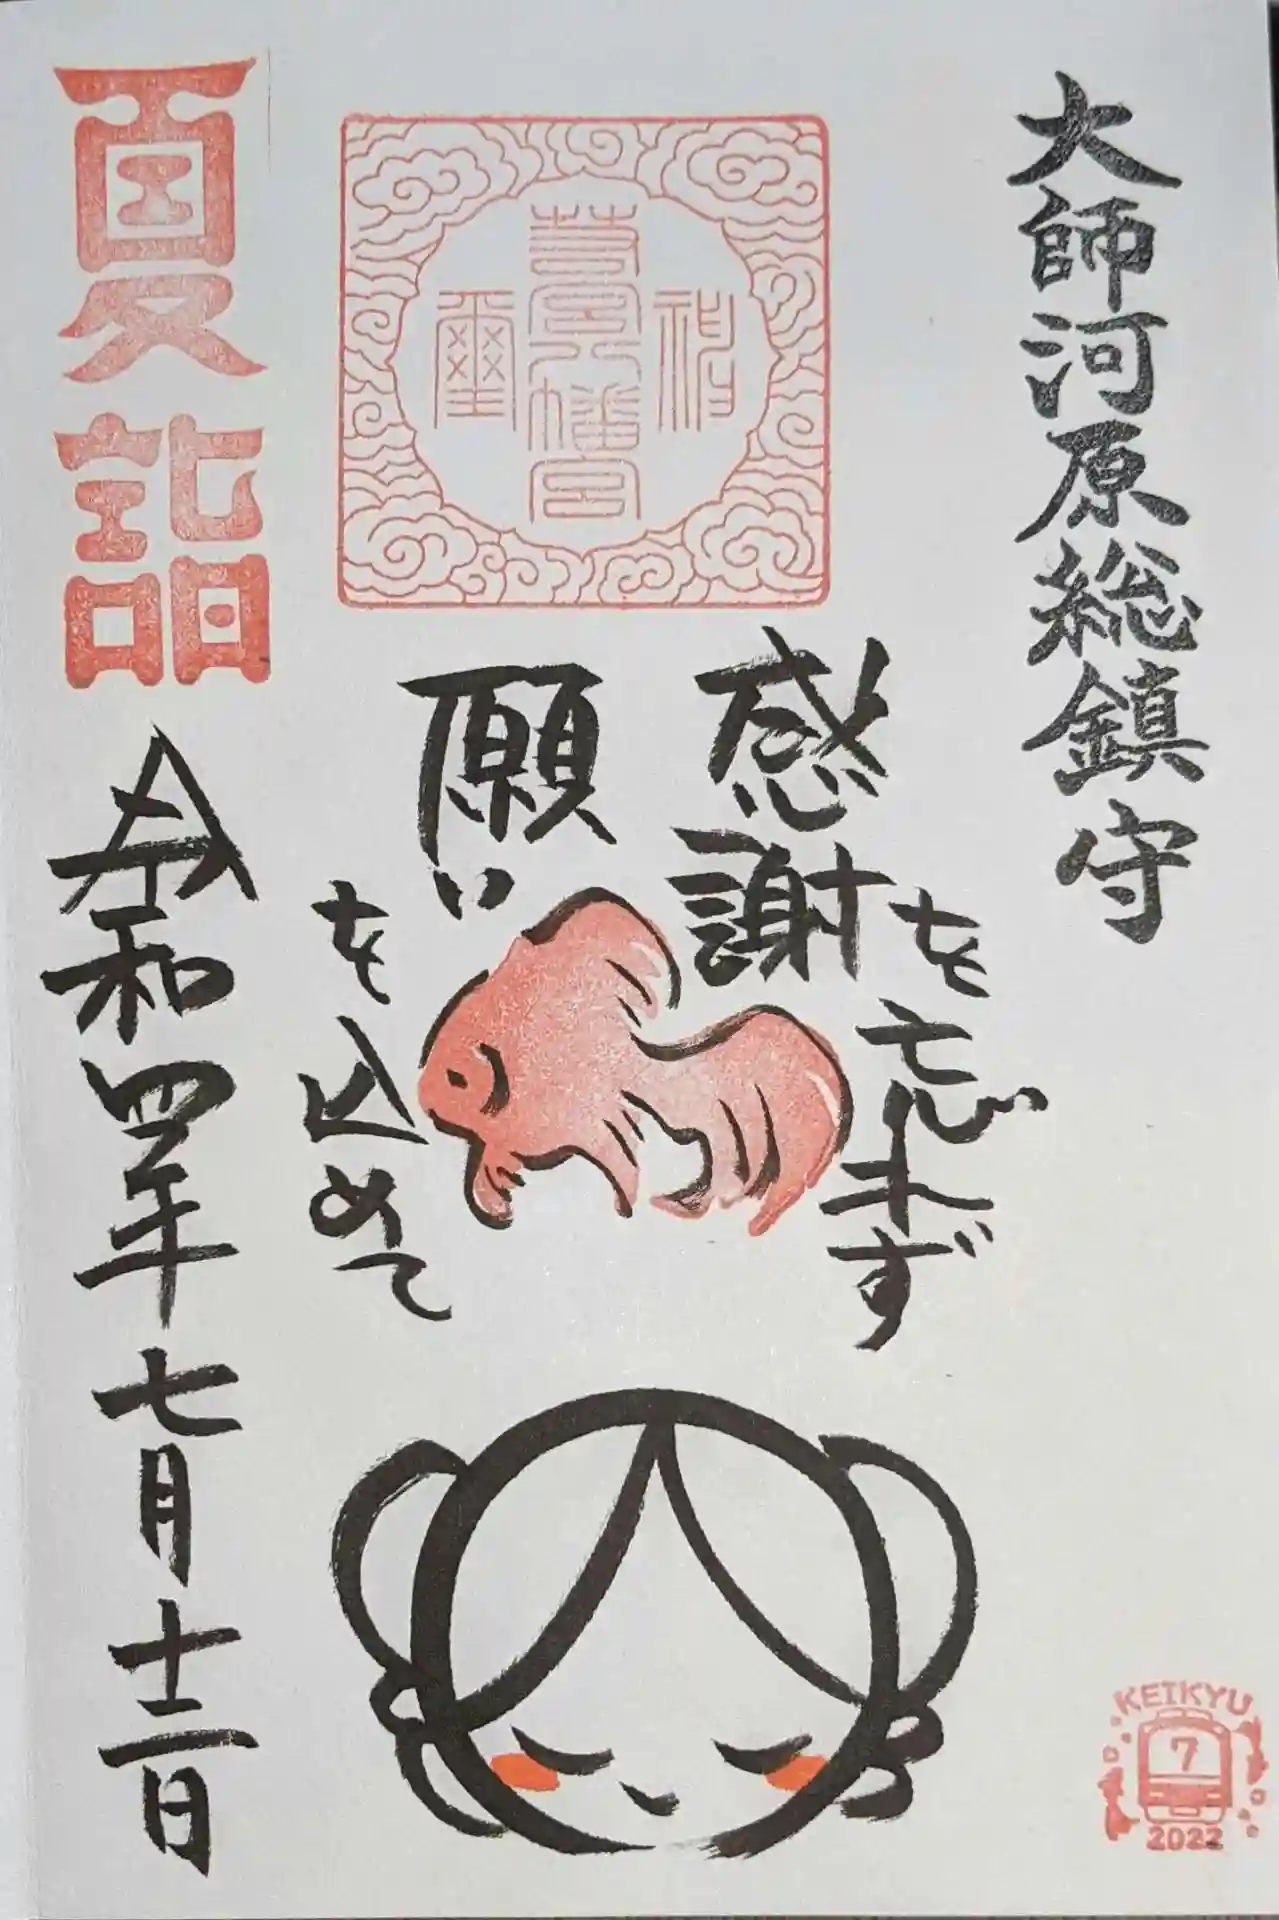 大師河原総鎮守
神
若宮八幡宮
璽
感謝を忘れず
願いを込めて
夏詣
令和四年七月十二日
KEIKYU
7
2022